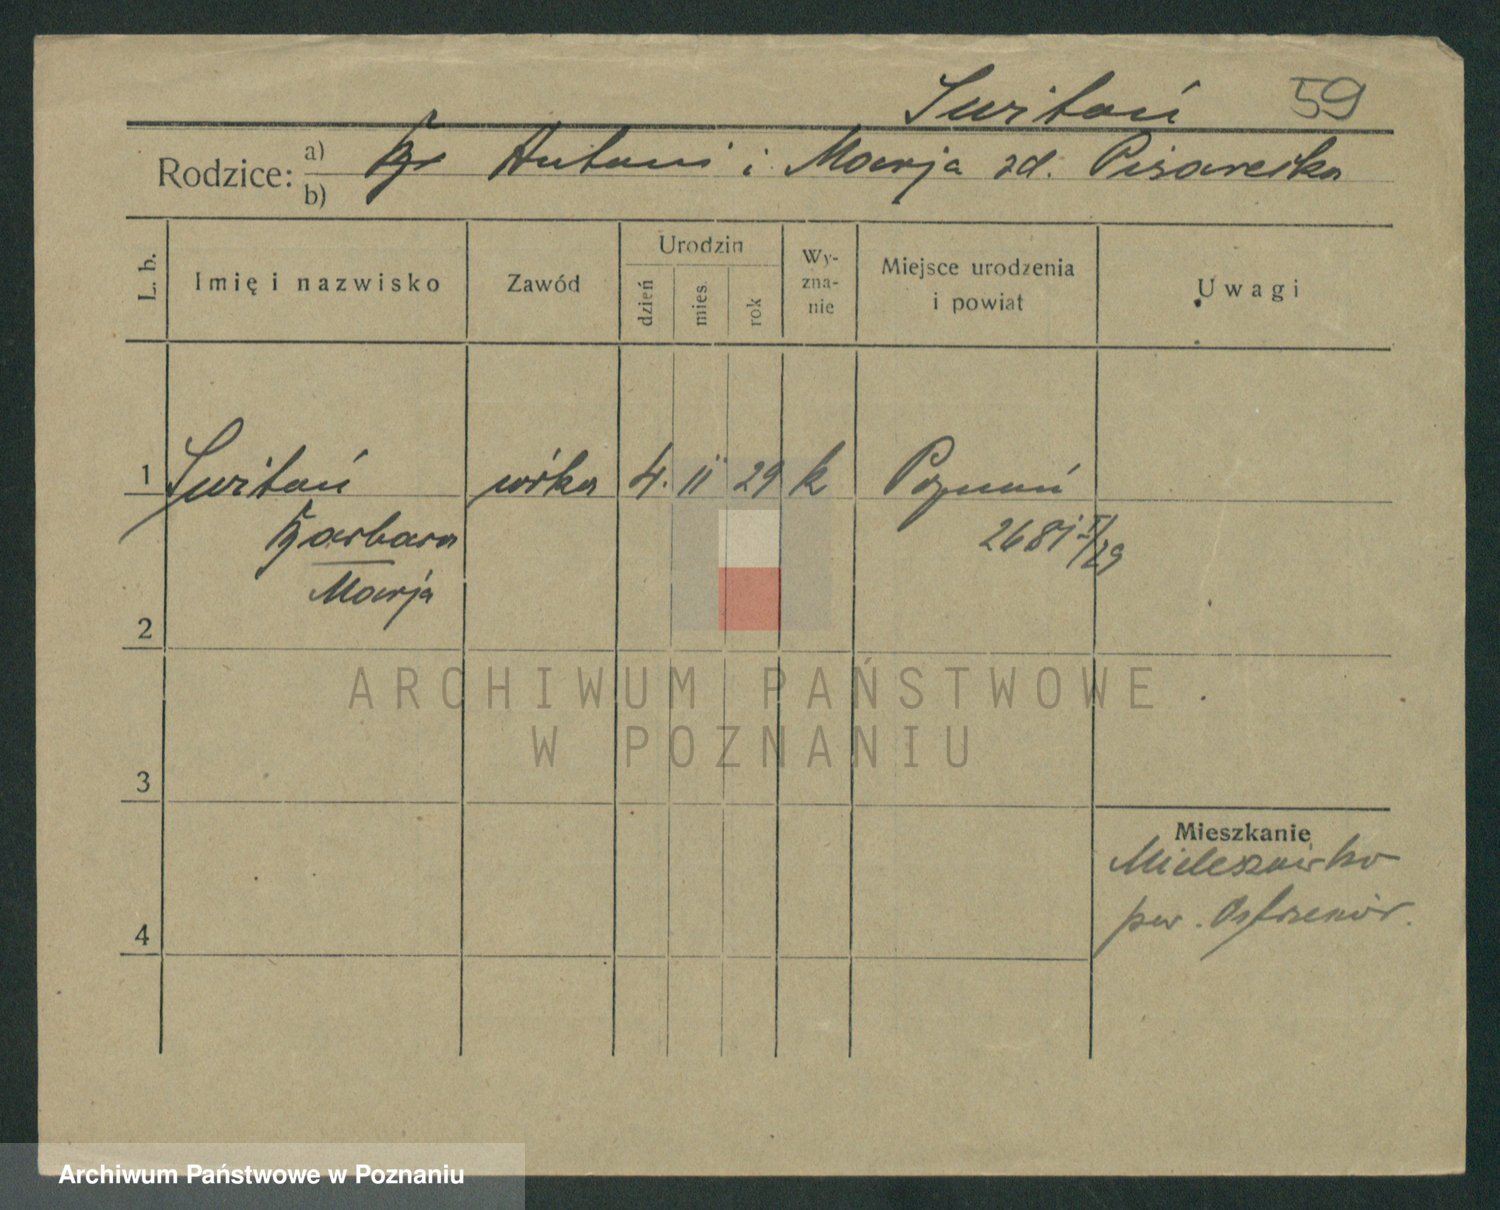 Switoń 59
Rodzice: a) Antoni i Marja zd. Pisarska
b)
L. b. Imię i nazwisko Zawód Urodzin dzień mies. rok Wy-zna-nie Miejsce urodzenia i powiat Uwagi
1 Switoń córka 4. 11 29 k Poznań
Barbara 2681 I/29
Marja
2
ARCHIWUM PAŃSTWOWE
W POZNANIU
3
Mieszkanie
pow.
4
Archiwum Państwowe w Poznaniu